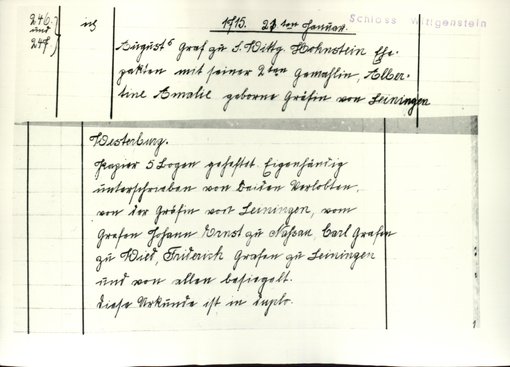 246. und 247.
1715. 23ten Januar.
Schloss Wittgenstein
August's Graf zu S. Wittg. Hohnstein Ehe-
pakten mit seiner 2ten Gemahlin, Alber-
tine Amalie geborne Gräfin von Leiningen
Westerburg.
Papier 5 Bogen geheftet. Eigenhändig
unterschrieben von beiden Verlobten,
von der Gräfin von Leiningen, vom
Grafen Johann Ernst zu Naßau, Carl Grafen
zu Wied, Friderich Grafen zu Leiningen
und von allen besiegelt.
Diese Urkunde ist in duplo.